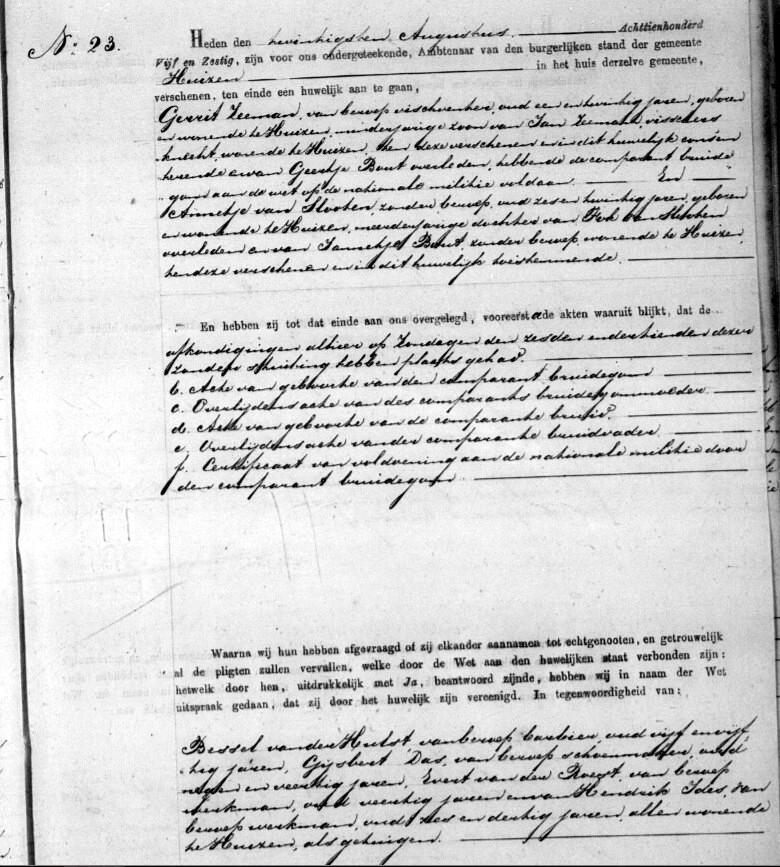 No: 23.
Heden den twintigsten Augustus Achttienhonderd
Vijf en Zestig, zijn voor ons ondergeteekende, Ambtenaar van den burgerlijken stand der gemeente
Huizen in het huis derzelve gemeente,
verschenen, ten einde een huwelijk aan te gaan,
Gerrit Zeeman, van beroep visschventer, oud een en twintig jaren, geboren
en wonende te Huizen, minderjarige zoon van Jan Zeeman, visschers
knecht, wonende te Huizen, ten deze verschenen en in dit huwelijk consen
terende en van Geertje Bout overleden, hebbende de comparant bruide
gom aan de wet op de nationale militie voldaan. En
Annetje van Slooten, zonder beroep, oud zes en twintig jaren, geboren
en wonende te Huizen, meerderjarige dochter van Fok van Slooten
overleden en van Jannetje Bout, zonder beroep, wonende te Huizen,
ten deze verschenen en in dit huwelijk toestemmende.
En hebben zij tot dat einde aan ons overgelegd, vooreerst a de akten waaruit blijkt, dat de
afkondigingen alhier op Zondagen den zesden en dertienden dezer
zonder stuiting hebben plaats gehad.
b. Acte van geboorte van den comparant bruidegom
c. Overlijdens acte van des comparants bruidegommoeder.
d. Acte van geboorte van de comparante bruid.
e. Overlijdens acte van der comparante bruidvader.
f. Certificaat van voldoening aan de nationale militie door
den comparant bruidegom.
Waarna wij hun hebben afgevraagd of zij elkander aannamen tot echtgenooten, en getrouwelijk
al de pligten zullen vervullen, welke door de Wet aan den huwelijken staat verbonden zijn:
hetwelk door hen, uitdrukkelijk met Ja, beantwoord zijnde, hebben wij in naam der Wet
uitspraak gedaan, dat zij door het huwelijk zijn vereenigd. In tegenwoordigheid van:
Bessel van der Hulst van beroep barbier, oud vijf en vijf,
tig jaren, Gijsbert Das, van beroep schoenmaker, oud
negen en veertig jaren, Evert van der Roest, van beroep
werkman, oud veertig jaren en van Hendrik Ides, van
beroep werkman, oud zes en dertig jaren, allen wonende
te Huizen, als getuigen.